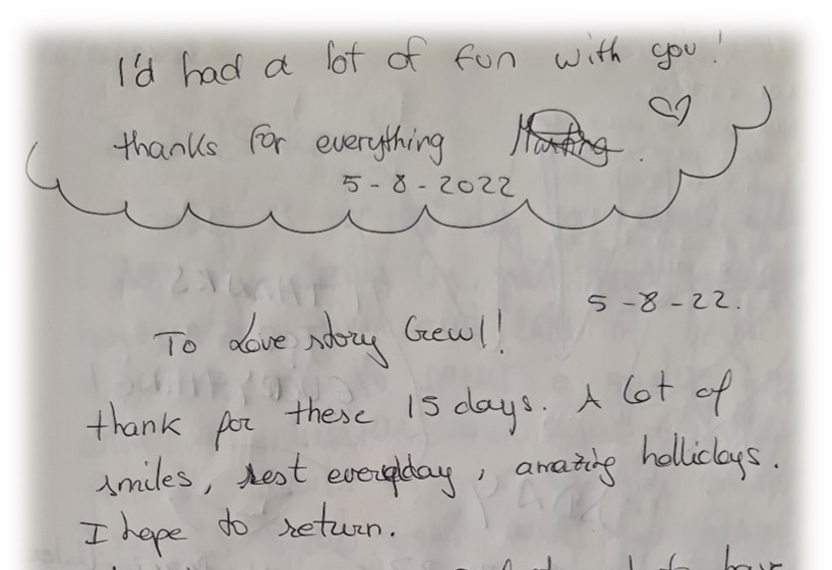 I'd had a lot of fun with you!
thanks for everything
5-8-2022
5-8-22.
To Love story Crew!!
thank for these 15 days. A lot of
smiles, rest everyday, amazing hollidays.
I hope to return.
to have